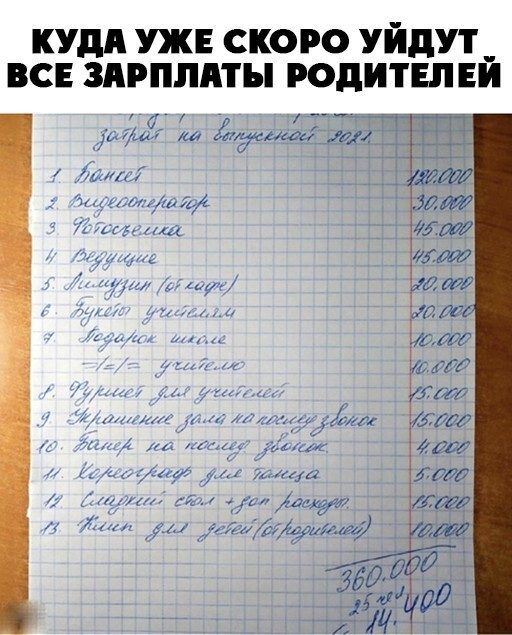 КУДА УЖЕ СКОРО УЙДУТ
ВСЕ ЗАРПЛАТЫ РОДИТЕЛЕЙ
затрат на выпускной 2021.
1. Банкет 120.000
2. Видеооператор 30.000
3. Фотосъемка 45.000
4. Ведущие 45.000
5. Лимузин (от кафе) 20.000
6. Букеты учителям 20.000
7. Подарок школе 10.000
=/=/= учителю 10.000
8. Фуршет для учителей 15.000
9. Украшение зала на послед звонок 15.000
10. Банер на послед звонок. 4.000
11. Хореограф для танца 5.000
12. Сладкий стол + доп расходы. 15.000
13. Клип для детей (от родителей) 10.000
360.000
25 чел
14.400